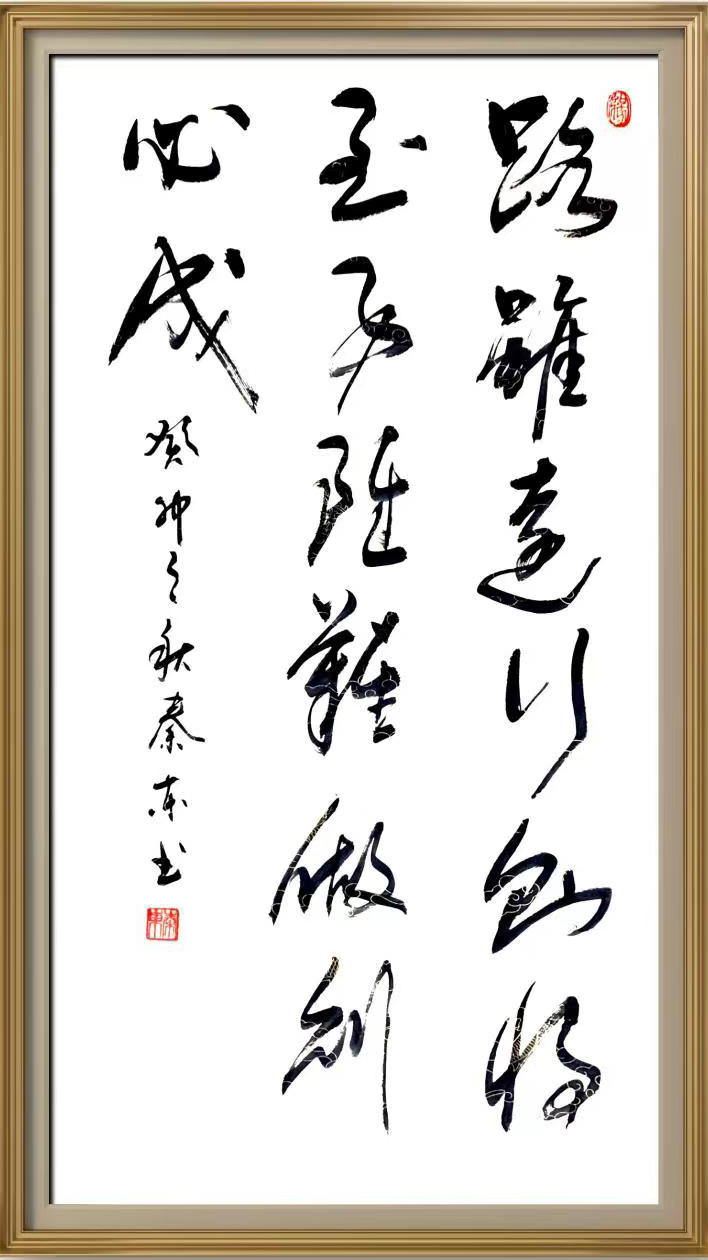 路雖遠行則将
至事雖難做則
必成
癸卯之秋秦东书
秦東